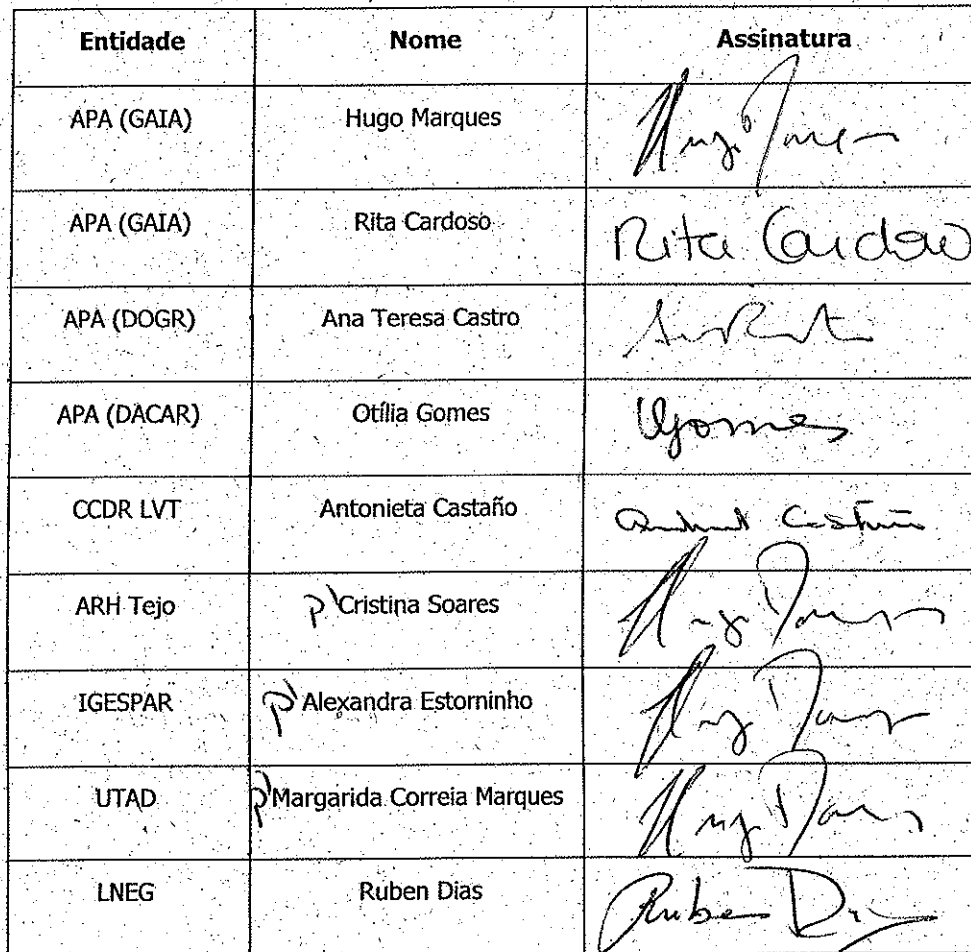 Entidade Nome Assinatura
APA (GAIA) Hugo Marques Hugo Marques
APA (GAIA) Rita Cardoso Rita Cardoso
APA (DOGR) Ana Teresa Castro
APA (DACAR) Otília Gomes OGomes
CCDR LVT Antonieta Castaño Castaño
ARH Tejo p' Cristina Soares Hugo Marques
IGESPAR p' Alexandra Estorninho Hugo Marques
UTAD p' Margarida Correia Marques Hugo Marques
LNEG Ruben Dias Ruben Dias